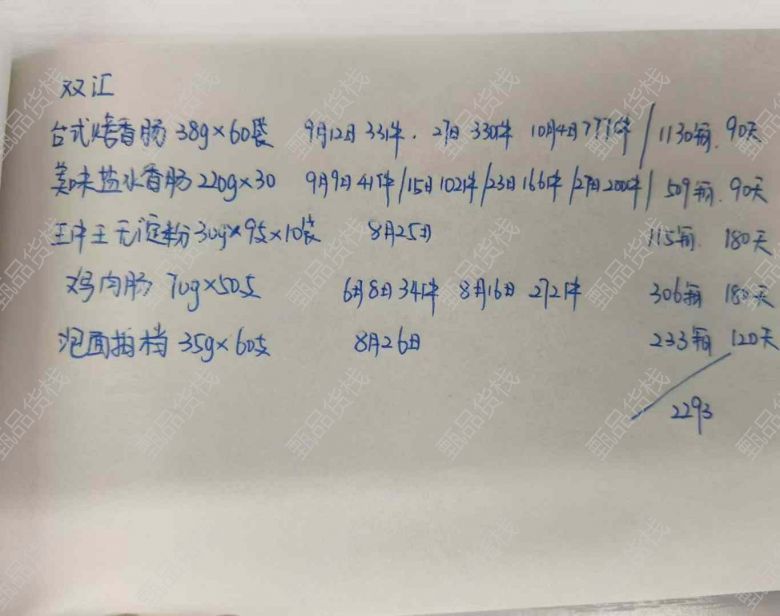 双汇
台式烤香肠 38g×60袋 9月12日 33件. 27日 330件 10月4日 777件 / 1130箱. 90天
美味盐水香肠 220g×30 9月9日 41件/15日102件/23日166件/27日200件/ 509箱. 90天
王中王无淀粉 30g×9支×10袋 8月25日 115箱. 180天
鸡肉肠 70g×50支 6月8日 34件 8月16日 272件 306箱 180天
泡面拍档 35g×60支 8月26日 233箱 120天
2293
甄品货栈